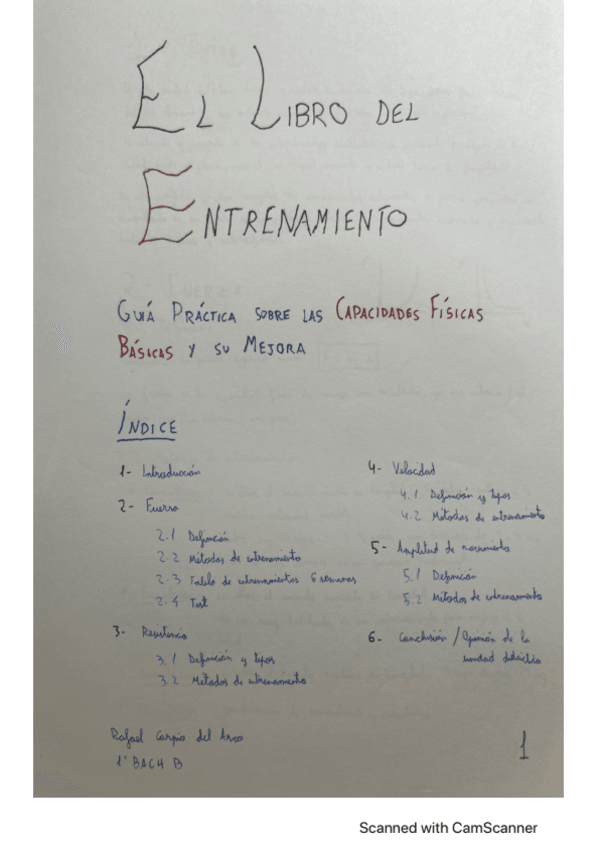 El Libro del
Entrenamiento
Guía Práctica sobre las Capacidades Físicas
Básicas y su Mejora
Índice
1- Introducción
2- Fuerza
2.1 Definición
2.2 Métodos de entrenamiento
2.3 Tabla de entrenamientos 6 semanas
2.4 Test
3- Resistencia
3.1 Definición y tipos
3.2 Métodos de entrenamiento
4- Velocidad
4.1 Definición y tipos
4.2 Métodos de entrenamiento
5- Amplitud de movimiento
5.1 Definición
5.2 Métodos de entrenamiento
6- Conclusión / Opinión de la
unidad didáctica
Rafael Carpio del Arco
1º BACH B
1
Scanned with CamScanner